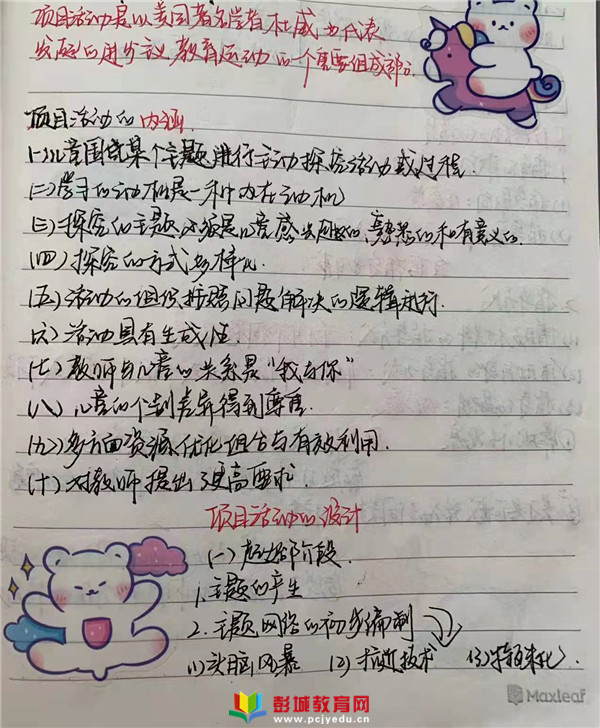 项目活动是以美国著名学者杜威为代表
发起的进步主义教育运动的一个重要组成部分.
项目活动的内涵
(一)儿童围绕某个主题进行主动探究活动或过程.
(二)学习的动机是一种内在动机
(三)探究的主题必须是儿童感兴趣的、熟悉的和有意义的.
(四)探究的方式多样化.
(五)活动的组织按照问题解决的逻辑进行.
(六)活动具有生成性.
(七)教师与儿童的关系是“我与你”
(八)儿童的个别差异得到尊重.
(九)多方面资源优化组合与有效利用.
(十)对教师提出了更高要求.
项目活动的设计
(一)起始阶段.
1.主题的产生
2.主题网络的初步编制
(1)头脑风暴 (2) 技术 (3)
彭城教育网
www.pcjyedu.cn
Maxleaf